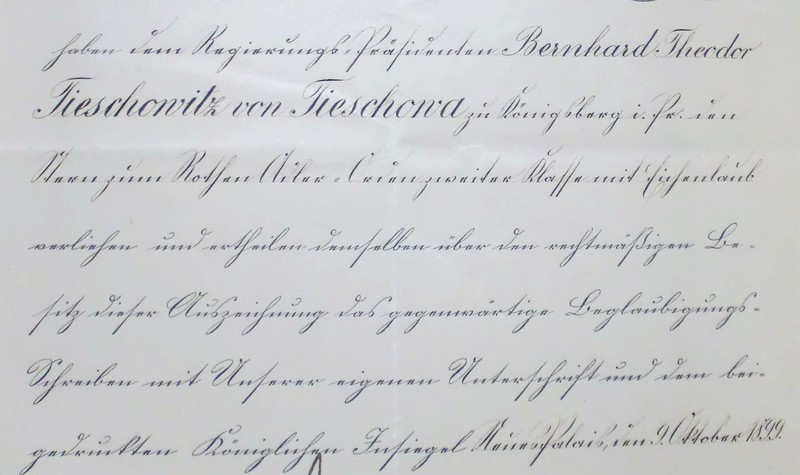 haben dem Regierungs-Präsidenten Bernhard Theodor
Tieschowitz von Tieschowa zu Königsberg i. Pr. den
Stern zum Rothen Adler-Orden zweiter Klasse mit Eichenlaub
verliehen und ertheilen demselben über den rechtmäßigen Be-
sitz dieser Auszeichnung das gegenwärtige Beglaubigungs-
Schreiben mit Unserer eigenen Unterschrift und dem bei-
gedruckten Königlichen Insiegel Neues Palais, den 9. Oktober 1899.